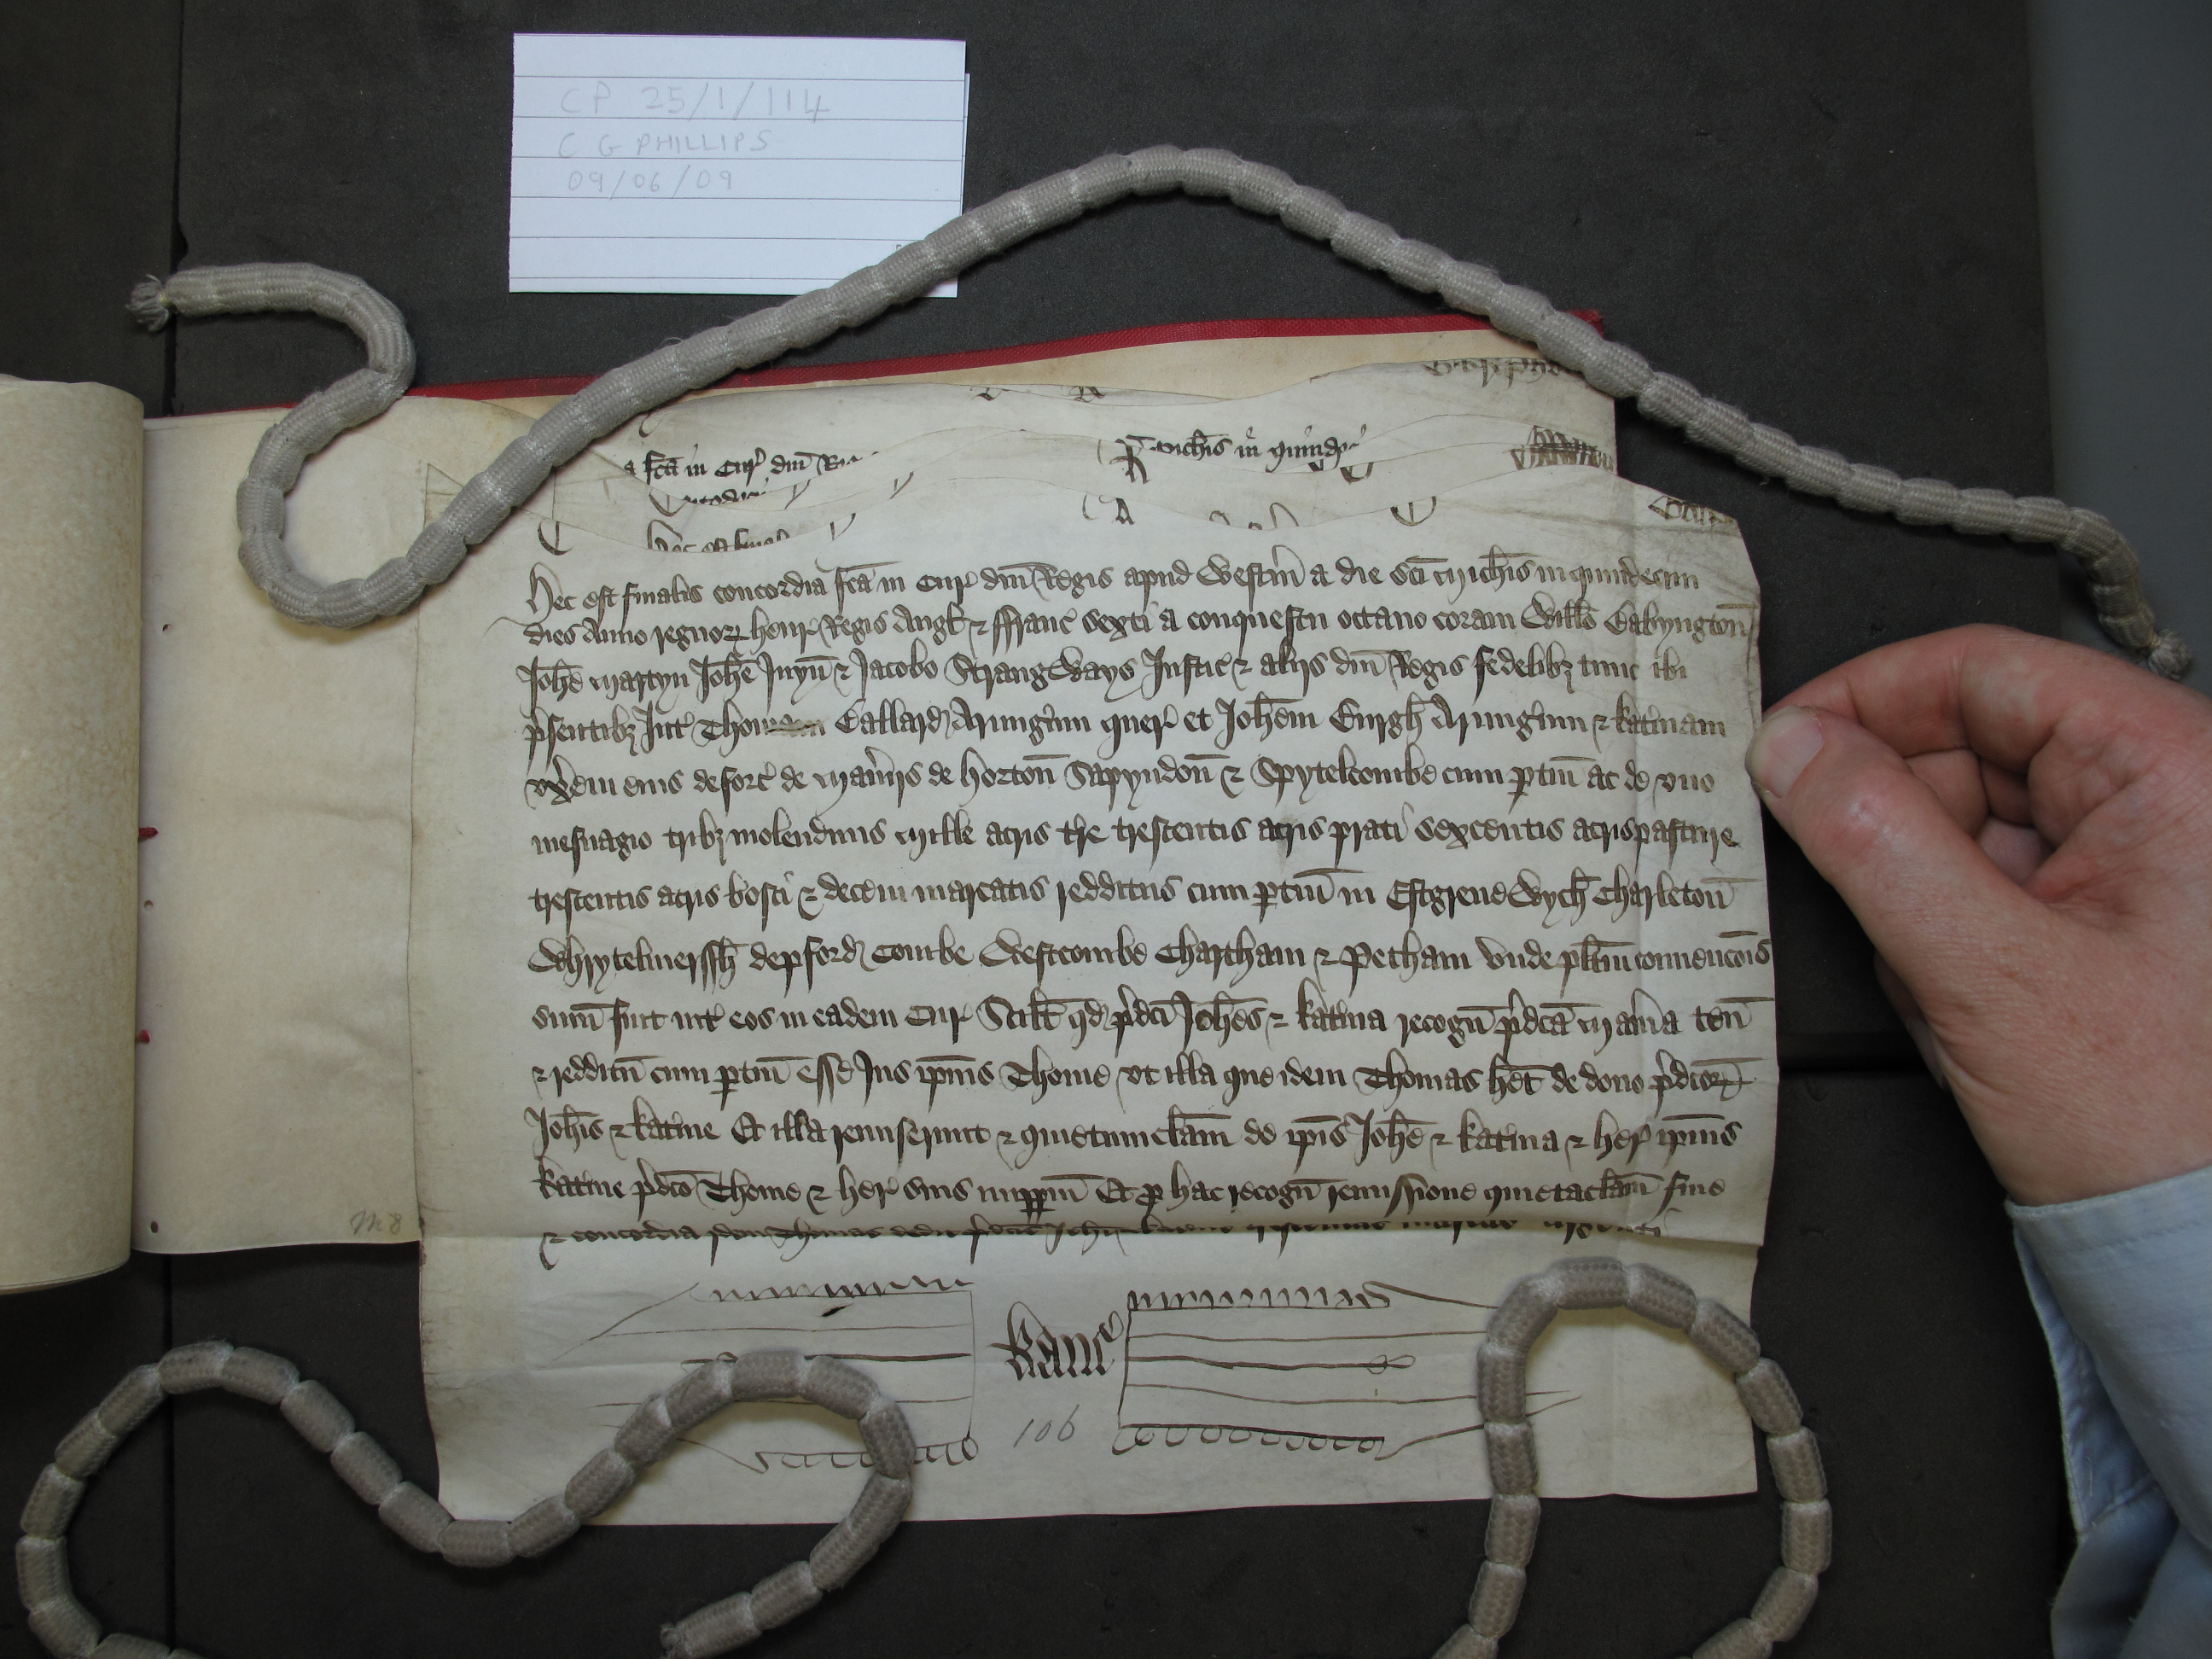 CP 25/1/114
C G PHILLIPS
09/06/09
a fcā in Cur' dn̄i
Michīs in quinde
Hec est finalis concordia fcā in Cur' dn̄i Regis apud Westm̄ a die Sc̄i Mich̄is in quindecim
dies Anno regnoꝝ Henr' Regis Angł ⁊ Franc' sexti a conquestu octauo coram Will̄o Babyngton̄
Joh̄e Martyn Joh̄e Juyn̄ ⁊ Jacobo Strangways Justic' ⁊ alijs dn̄i Regis fidelibꝫ tunc ibi
p'sentibꝫ Int' Thomam Ballard Armig'um quer' et Joh̄em Burgh̄ Armig'um ⁊ Kat'inam
vx'em eius deforc' de Man'ijs de Horton̄ Sapyndon̄ ⁊ Spytelcombe cum ꝑtin̄ ac de vno
mesuagio tribꝫ molendinis Mille acris t're trescentis acris prati sexcentis acris pasture
trescentis acris bosci ⁊ decem marcatis redditus cum ꝑtin̄ in Estgrenewych̄ Charleton̄
Whrytelmerssh̄ Depford Combe Westcombe Chartham ⁊ Petham Vnde pl̄itm̄ conuenc̄ois
sum̄ fuit int' eos in eadem Cur' Scil̄t qd p'dc̄i Joh̄es ⁊ Kat'ina recogn̄ p'dc̄a Man'ia ten̄
⁊ redditū cum ꝑtin̄ esse Jus ip̄ius Thome vt illa que idem Thomas h̄et de dono p'dc̄oꝝ
Joh̄is ⁊ Kat'ine Et illa remiserunt ⁊ quietumclam̄ de ip̄is Joh̄e ⁊ Kat'ina ⁊ her' ip̄ius
Kat'ine p'dc̄o Thome ⁊ her' suis imꝑꝑm̄ Et ꝓ hac recogn̄ remissione quietaclam̄ fine
⁊ concordia idem Thomas dedit p'dc̄is Joh̄i ⁊ Kat'ine trescentas marcas argenti
M 8
Kanc'
106